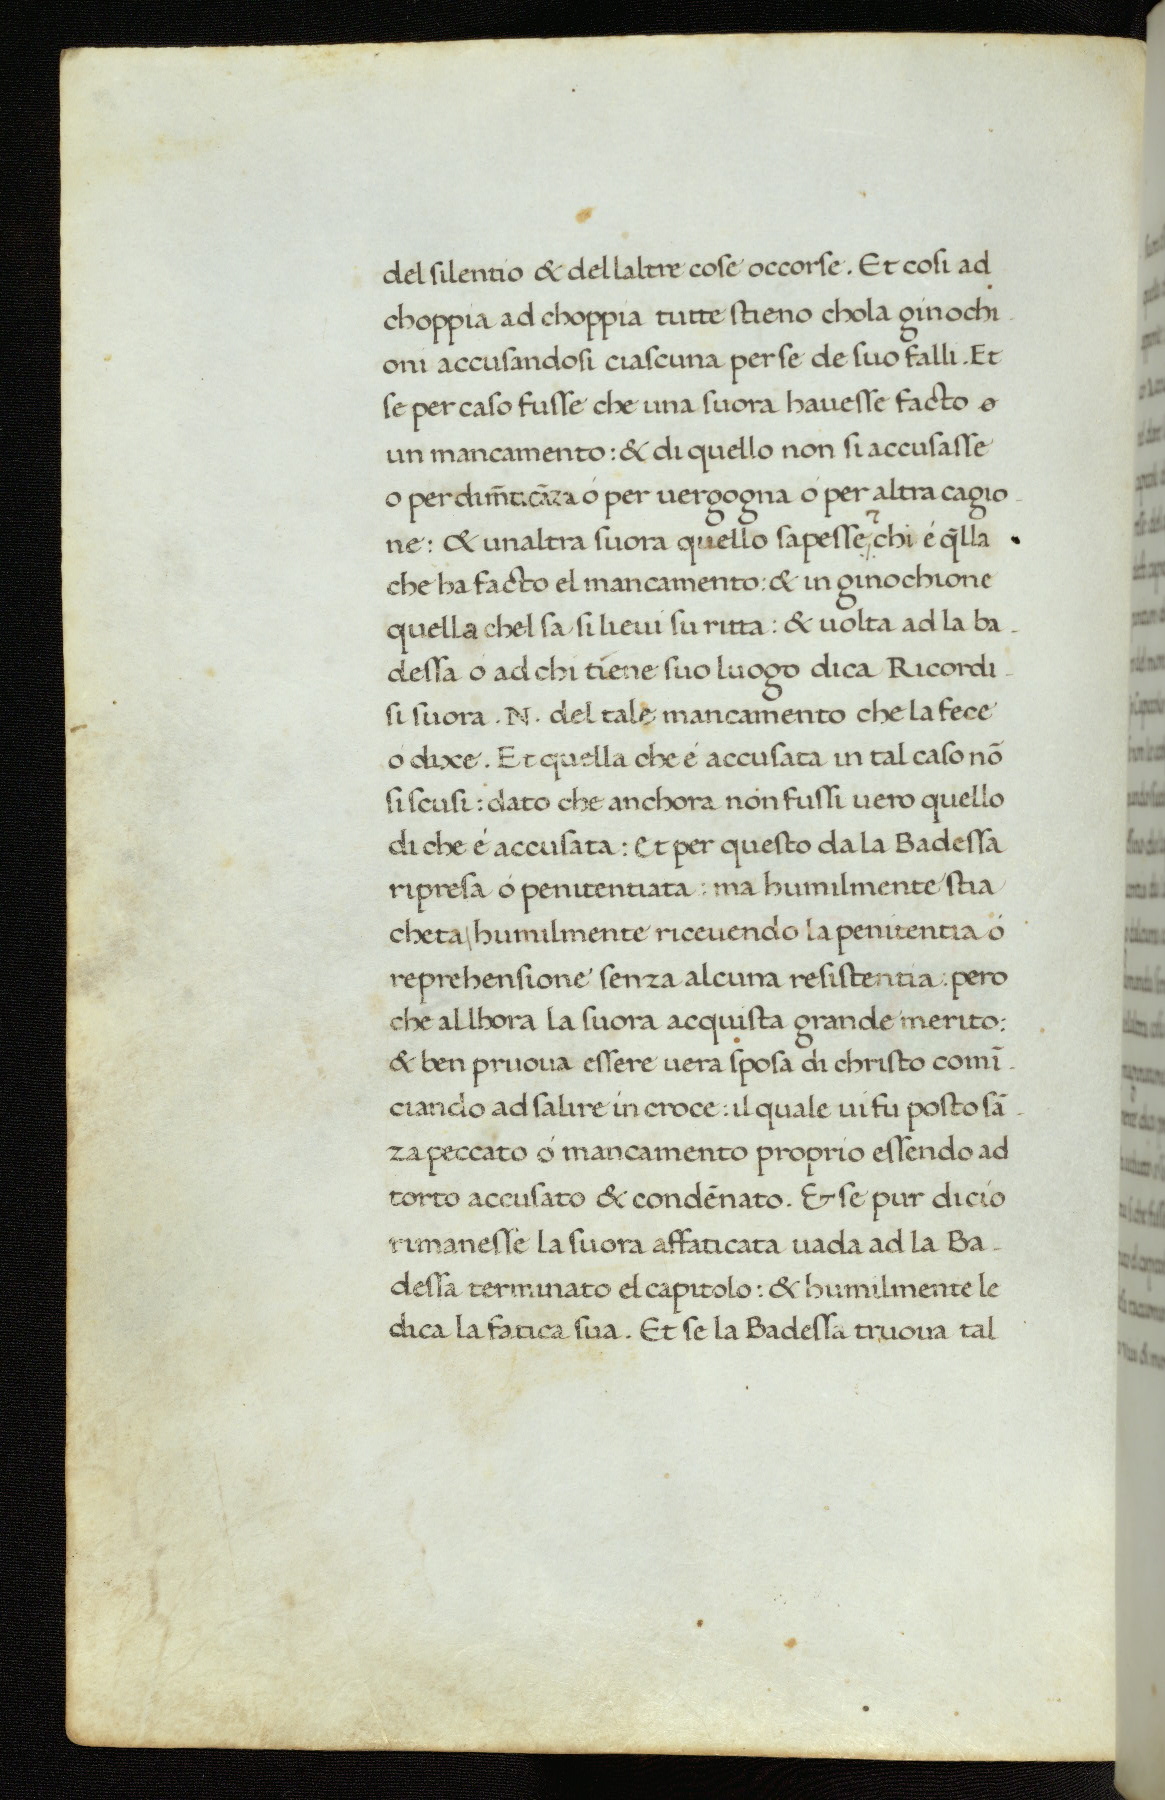 del silentio & dellaltre cose occorse. Et cosi ad
choppia ad choppia tutte stieno chola ginochi-
oni accusandosi ciascuna per se de suo falli. Et
se per caso fusse che una suora hauesse facto o
un mancamento: & di quello non si accusasse
o per dim̄ticāza ó per uergogna ó per altra cagio-
ne: & unaltra suora quello sapesse, chi é q̄lla
che ha facto el mancamento: & in ginochione
quella chel sa si lieui su ritta: & uolta ad la ba-
dessa o ad chi tiene suo luogo dica Ricordi-
si suora .N. del tale mancamento che la fece
ó dixe. Et quella che é accusata in tal caso nō
si scusi: dato che anchora non fussi uero quello
di che é accusata: Et per questo da la Badessa
ripresa ó penitentiata: ma humilmente stia
cheta humilmente riceuendo la penitentia ó
reprehensione senza alcuna resistentia: pero
che allhora la suora acquista grande merito:
& ben pruoua essere uera sposa di christo comī-
ciando ad salire in croce: il quale ui fu posto sā-
za peccato ó mancamento proprio essendo ad
torto accusato & condēnato. & se pur di cio
rimanesse la suora affaticata uada ad la Ba-
dessa terminato el capitolo: & humilmente le
dica la fatica sua. Et se la Badessa truoua tal